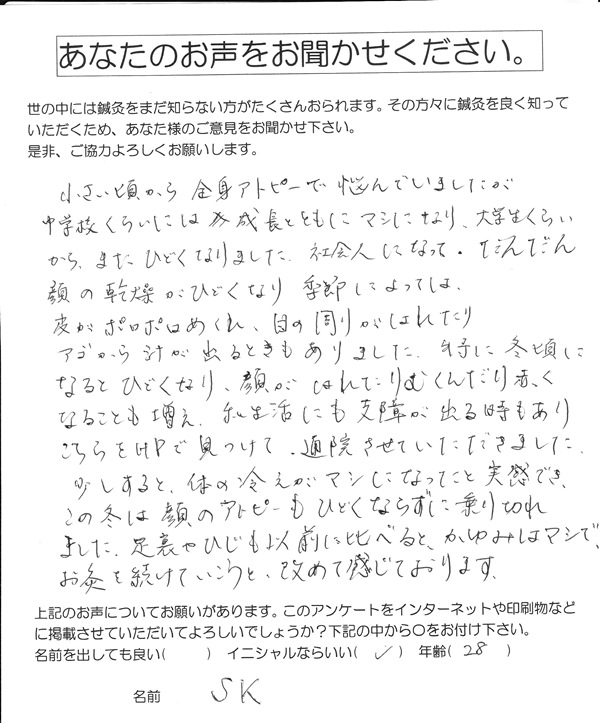 あなたのお声をお聞かせください。
世の中には鍼灸をまだ知らない方がたくさんおられます。その方々に鍼灸を良く知って
いただくため、あなた様のご意見をお聞かせ下さい。
是非、ご協力よろしくお願いします。
小さい頃から 全身アトピーで 悩んでいましたが
中学校くらいには 成長とともに マシになり、大学生くらい
から、また ひどくなりました. 社会人になって・だんだん
顔の乾燥がひどくなり 季節によっては、
皮がポロポロめくれ、目の周りがはれたり
アゴから汁が出るときもありました. 特に冬頃に
なると ひどくなり、顔が はれたりむくんだり赤く
なることも増え. 私生活にも支障が出る時もあり
こちらをHPで見つけて、通院させていただきました.
少しすると、体の冷えがマシになってこと実感でき、
この冬は顔のアトピーもひどくならずに乗り切れ
ました. 足裏やひじも以前に比べると、かゆみはマシで、
お灸を続けていこうと、改めて感じております.
上記のお声についてお願いがあります。このアンケートをインターネットや印刷物など
に掲載させていただいてよろしいでしょうか?下記の中から〇をお付け下さい。
名前を出しても良い( ) イニシャルならいい( ✓ ) 年齢( 28 )
名前 SK